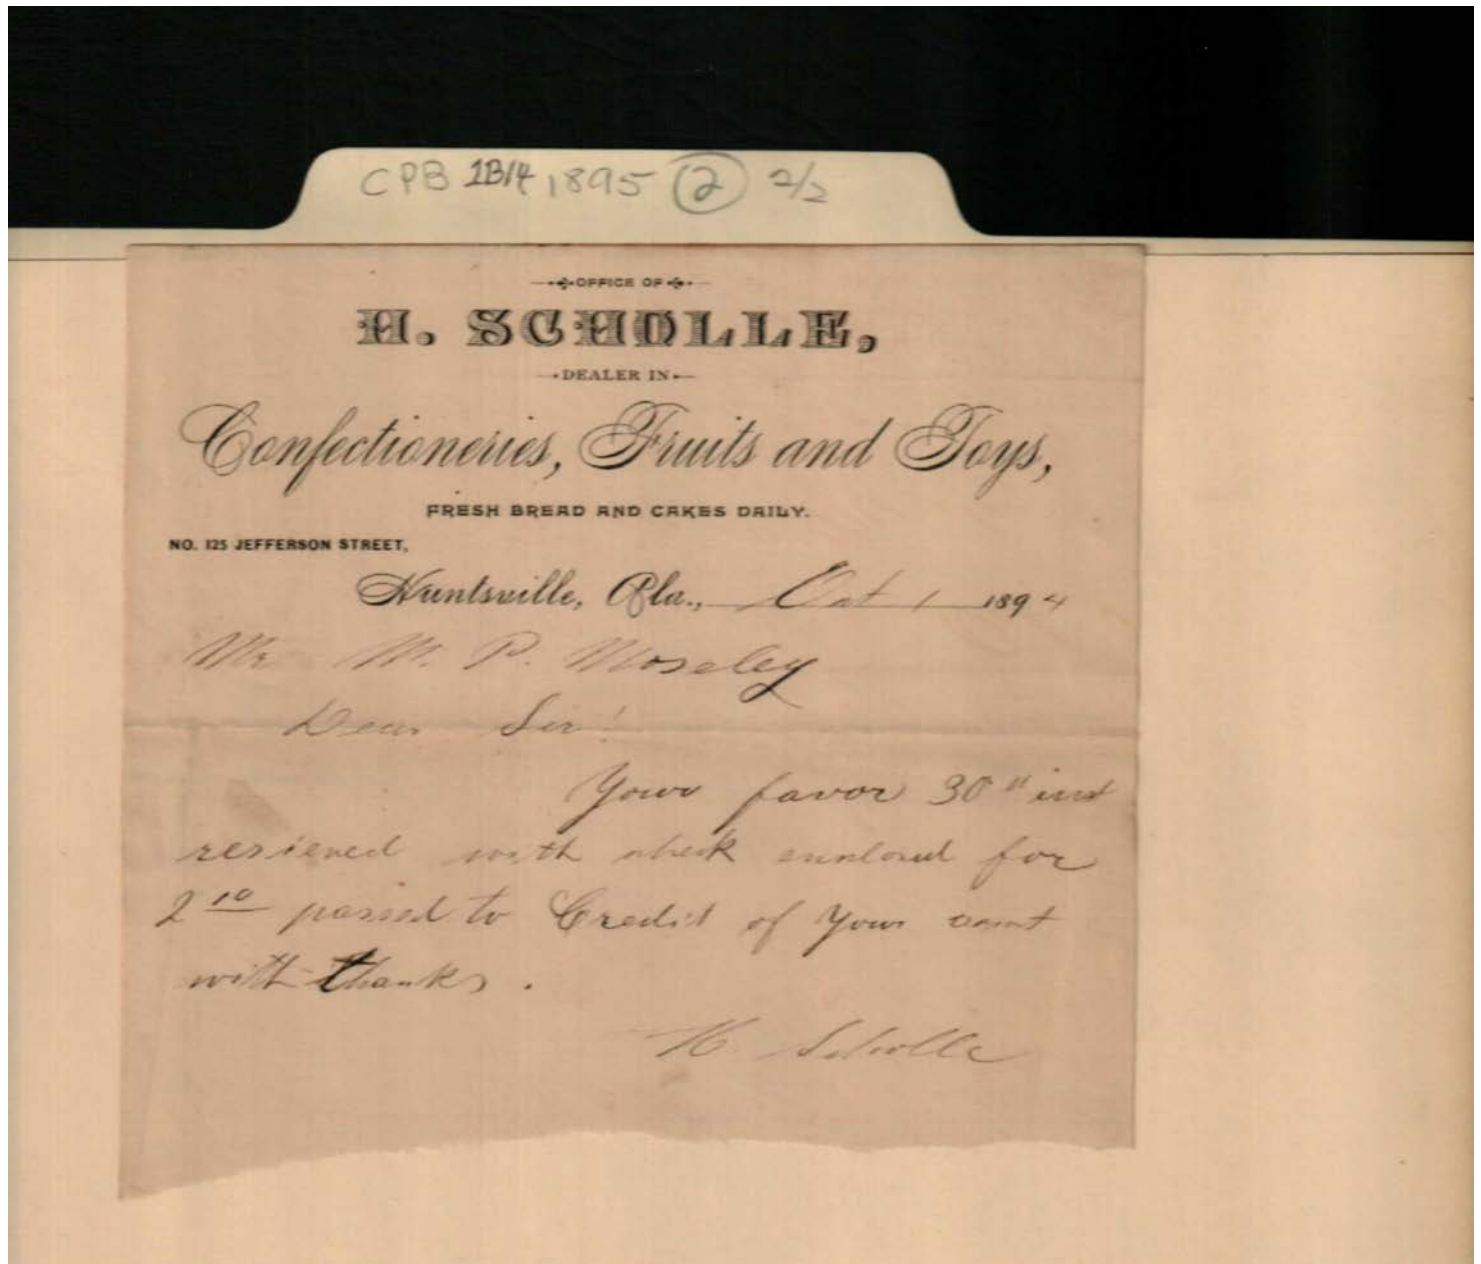 CPB 1B14 1895 (2) 2/2
OFFICE OF
H. SCHOLLE,
DEALER IN
Confectioneries, Fruits and Toys,
FRESH BREAD AND CAKES DAILY.
NO. 125 JEFFERSON STREET,
Huntsville, Ala., Oct 1 1894
Mr M. P. Moseley
Dear Sir!
Your favor 30" inst
resieved with check enclosed for
2 10 passed to Credit of Your
with thanks.
H Scholle